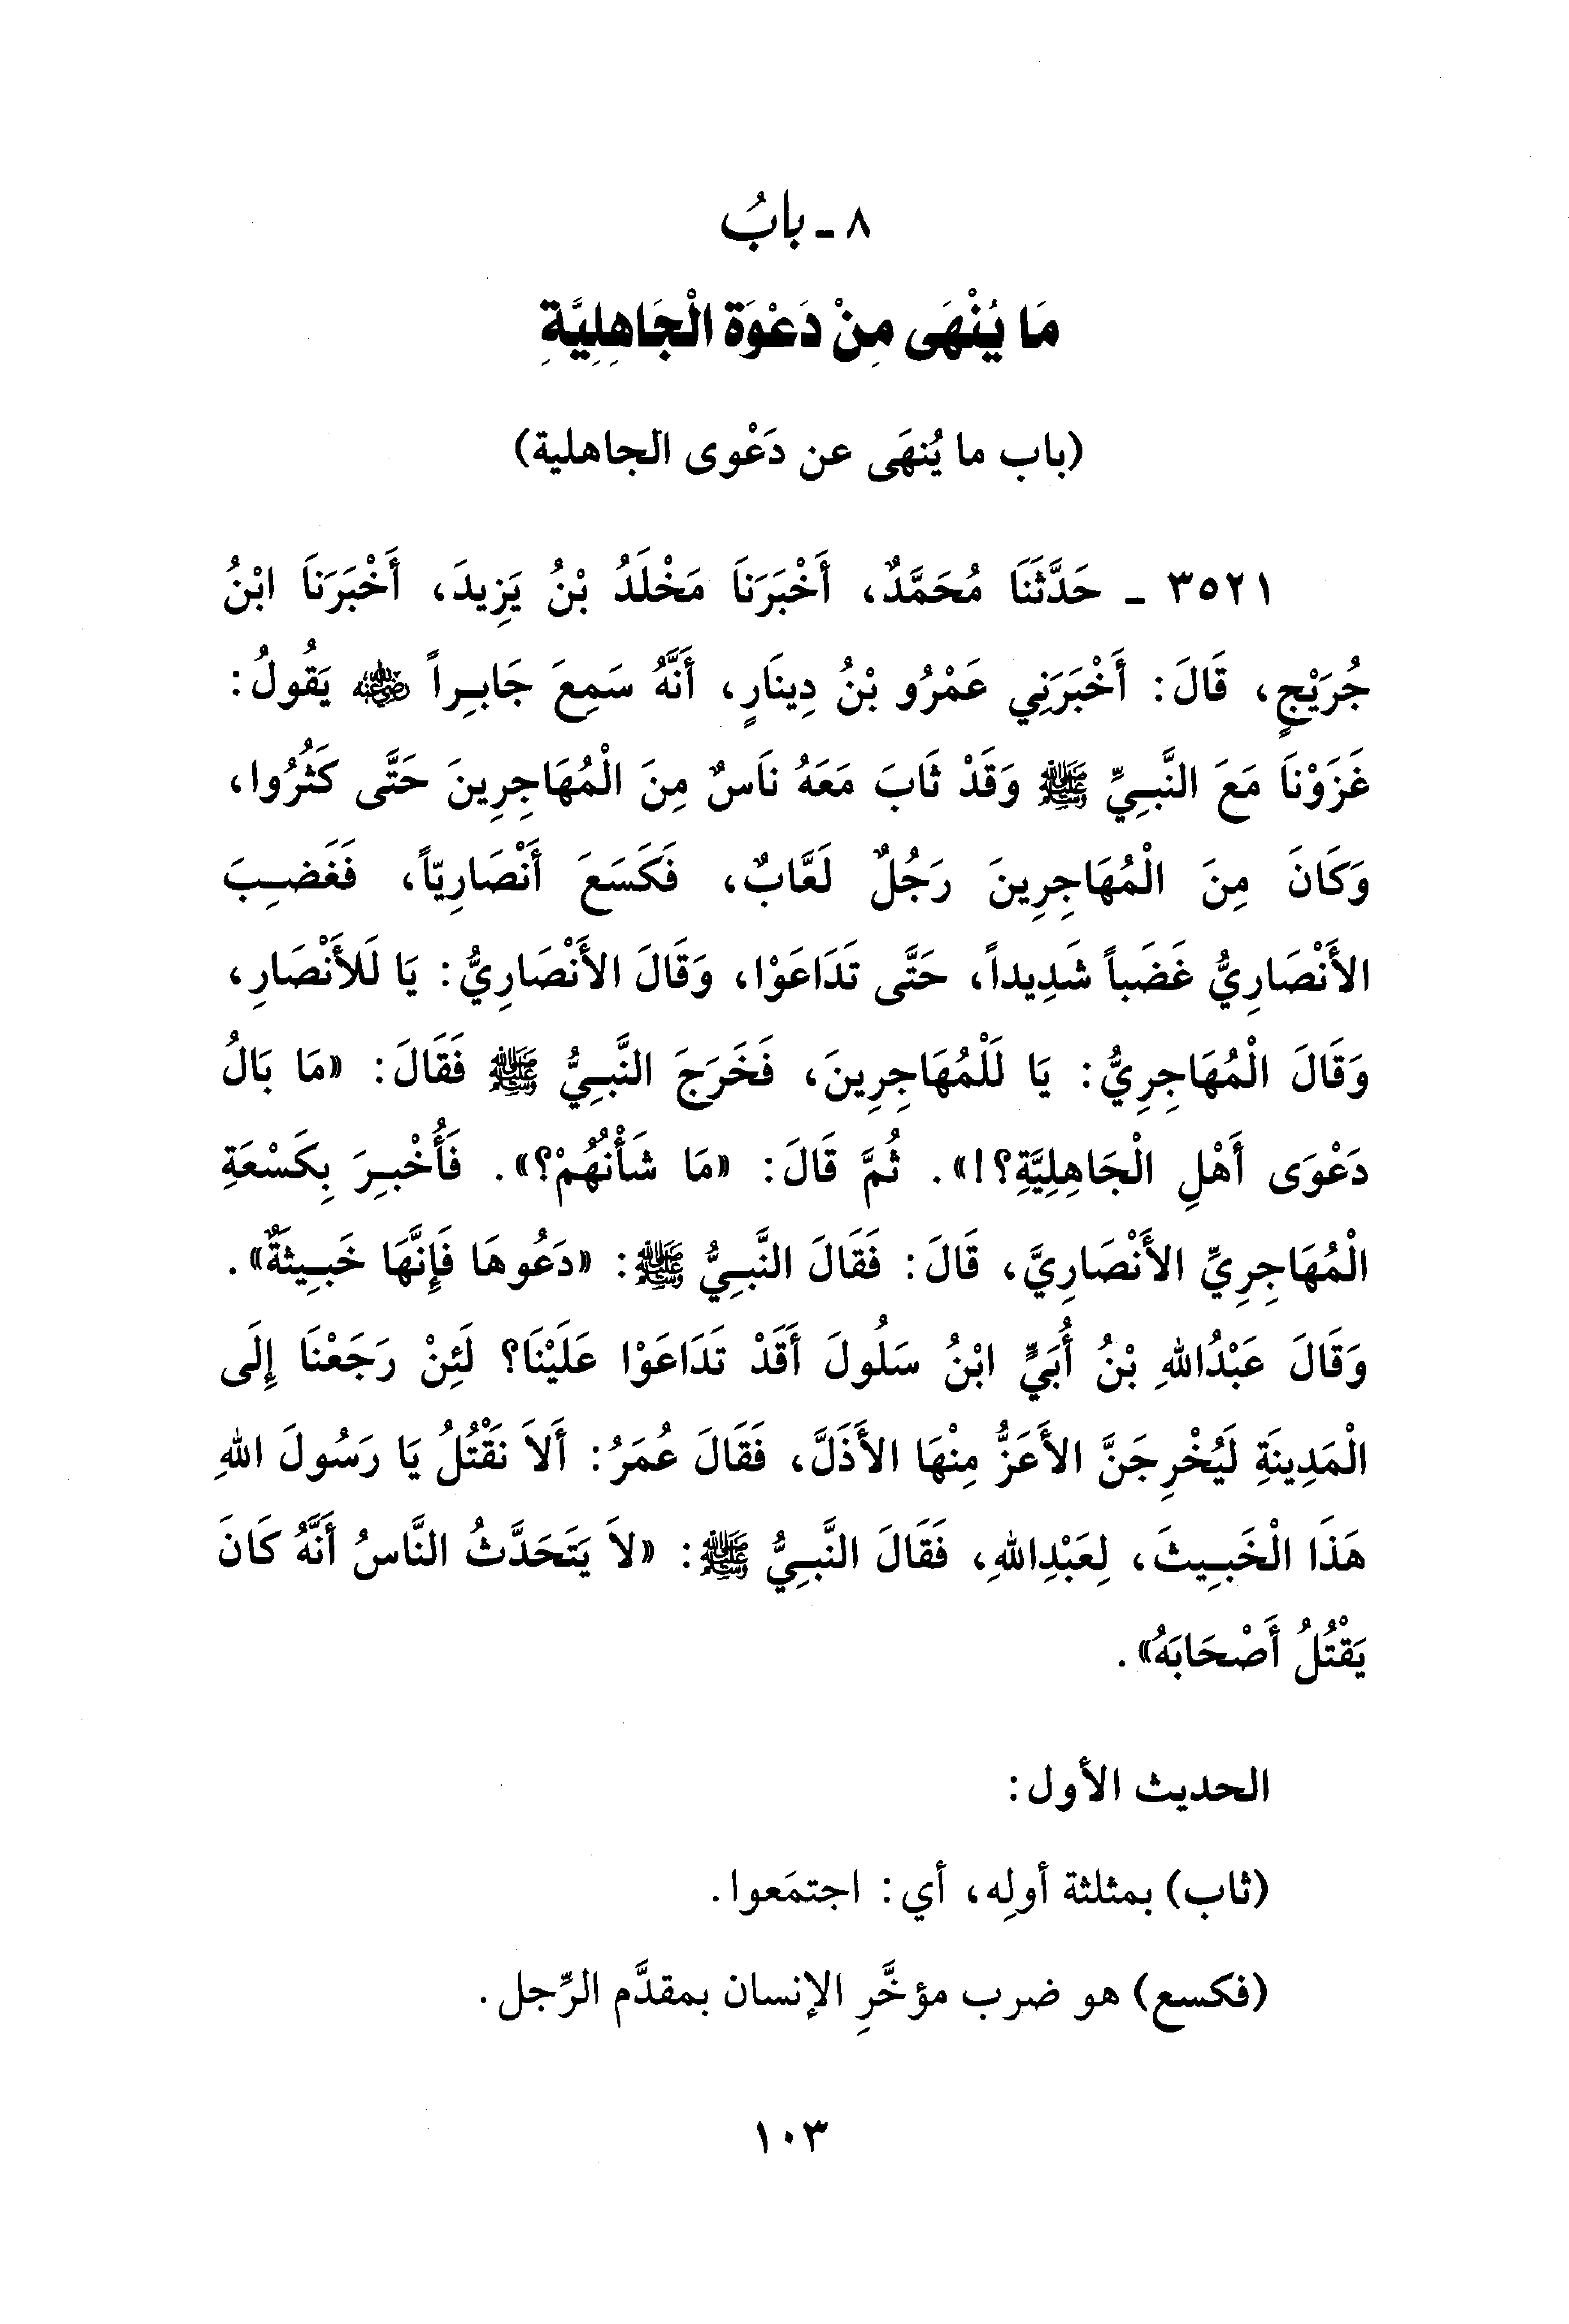 ٨ ـ بابُ
مَا يُنْهَى مِنْ دَعْوَةِ الْجَاهِلِيَّةِ
(باب ما يُنهَى عن دَعْوى الجاهلية)
٣٥٢١ ـ حَدَّثَنَا مُحَمَّدٌ، أَخْبَرَنَا مَخْلَدُ بْنُ يَزِيدَ، أَخْبَرَنَا ابْنُ
جُرَيْجٍ، قَالَ: أَخْبَرَنِي عَمْرُو بْنُ دِينَارٍ، أَنَّهُ سَمِعَ جَابِراً رضي الله عنه يَقُولُ:
غَزَوْنَا مَعَ النَّبِيِّ ﷺ وَقَدْ ثَابَ مَعَهُ نَاسٌ مِنَ الْمُهَاجِرِينَ حَتَّى كَثُرُوا،
وَكَانَ مِنَ الْمُهَاجِرِينَ رَجُلٌ لَعَّابٌ، فَكَسَعَ أَنْصَارِيّاً، فَغَضِبَ
الأَنْصَارِيُّ غَضَباً شَدِيداً، حَتَّى تَدَاعَوْا، وَقَالَ الأَنْصَارِيُّ: يَا لَلأَنْصَارِ،
وَقَالَ الْمُهَاجِرِيُّ: يَا لَلْمُهَاجِرِينَ، فَخَرَجَ النَّبِيُّ ﷺ فَقَالَ: «مَا بَالُ
دَعْوَى أَهْلِ الْجَاهِلِيَّةِ؟!». ثُمَّ قَالَ: «مَا شَأْنُهُمْ؟». فَأُخْبِرَ بِكَسْعَةِ
الْمُهَاجِرِيِّ الأَنْصَارِيَّ، قَالَ: فَقَالَ النَّبِيُّ ﷺ: «دَعُوهَا فَإِنَّهَا خَبِيثَةٌ».
وَقَالَ عَبْدُاللهِ بْنُ أُبَيٍّ ابْنُ سَلُولَ أَقَدْ تَدَاعَوْا عَلَيْنَا؟ لَئِنْ رَجَعْنَا إِلَى
الْمَدِينَةِ لَيُخْرِجَنَّ الأَعَزُّ مِنْهَا الأَذَلَّ، فَقَالَ عُمَرُ: أَلاَ نَقْتُلُ يَا رَسُولَ اللهِ
هَذَا الْخَبِيثَ، لِعَبْدِاللهِ، فَقَالَ النَّبِيُّ ﷺ: «لاَ يَتَحَدَّثُ النَّاسُ أَنَّهُ كَانَ
يَقْتُلُ أَصْحَابَهُ».
الحديث الأول:
(ثاب) بمثلثة أولِه، أي: اجتمَعوا.
(فكسع) هو ضرب مؤخَّرِ الإنسان بمقدَّم الرِّجل.
١٠٣